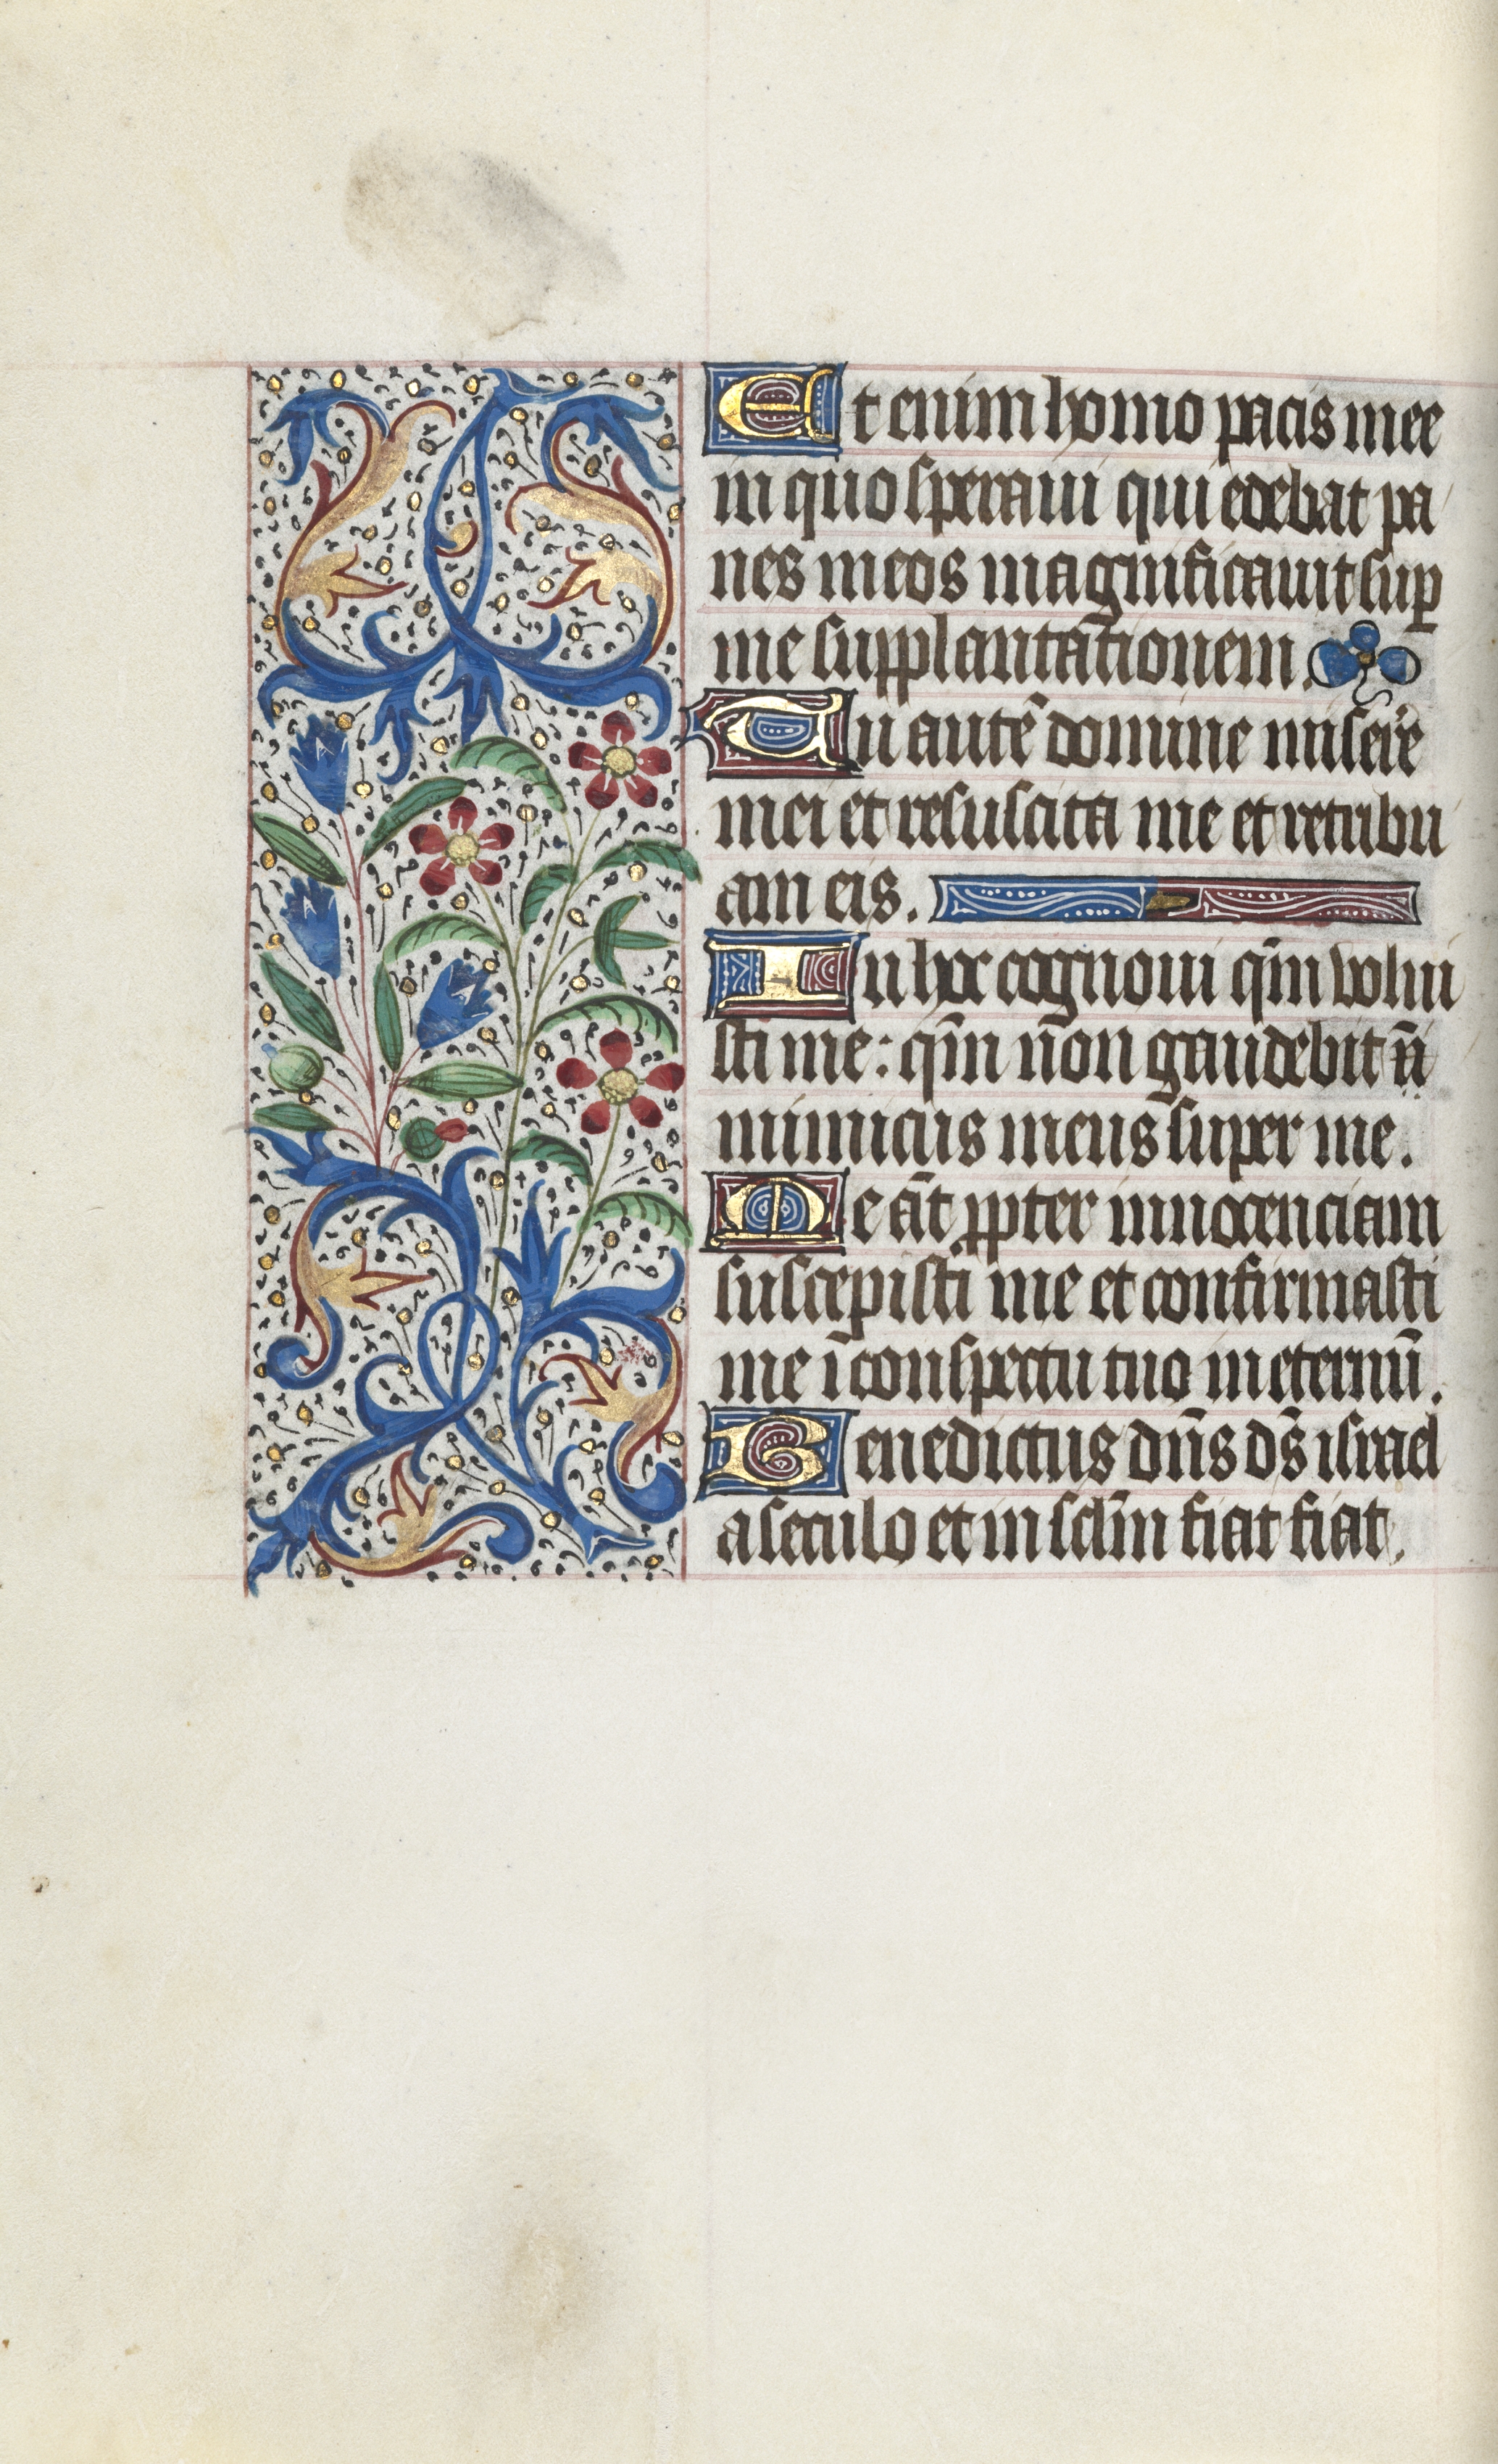 Et enim homo pacis mee
in quo speraui qui edebat pa
nes meos magnificauit sup̱
me supplantātionem.
Tu autē domine miser̄e
mei et resuscita me et retribu
am eis.
In hoc cognoui qm̄ volui
sti me: qm̄ nōn gaudebit n̄
inimicus meus super me.
Me āt ppter innocenciam
suscepisti me et confirmasti
me ī conspectu tuo in eternū.
Benedictus dn̄s ds̄ israel
a seculo et in sclm̄ fiat fiat.